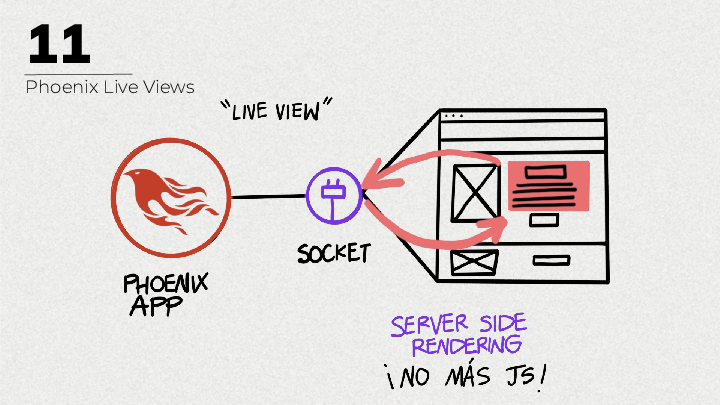 11
Phoenix Live Views
"LIVE VIEW"
SOCKET
PHOENIX
APP
SERVER SIDE
RENDERING
¡NO MÁS JS!